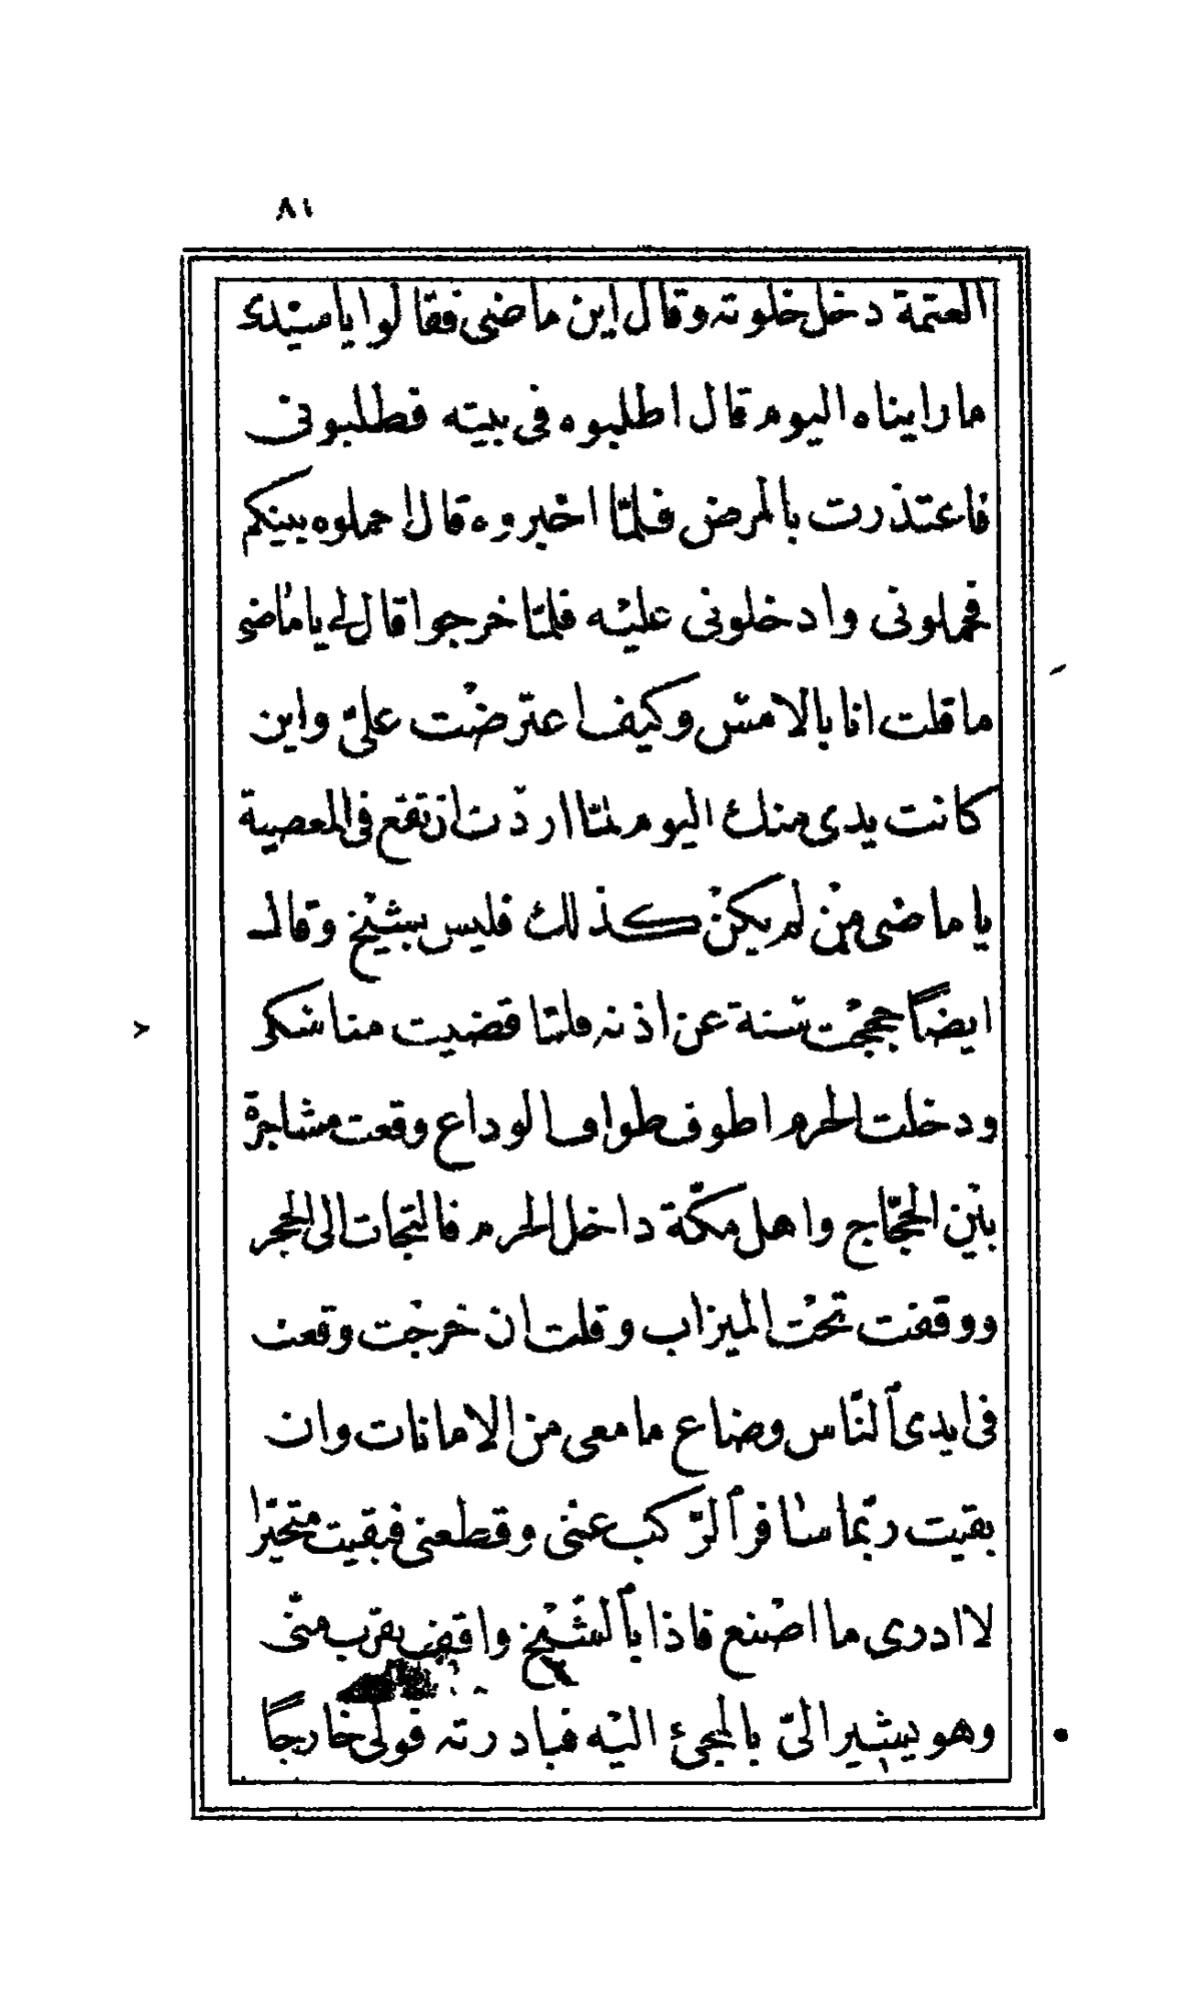 ٨١
العتمة دخل خلوته وقال اين ماضى فقالوا يا سيدى
ما رايناه اليوم قال اطلبوه فى بيته فطلبونى
فاعتذرت بالمرض فلمّا اخبروه قال احملوه بينكم
فحملونى وادخلونى عليه فلمّا خرجوا قال لى يا ماضى
ما قلت انا بالامس وكيف اعترضت علىّ واين
كانت يدى منك اليوم لمّا اردت ان تقع فى المعصية
يا ماضى من لم يكن كذلك فليس بشيخ وقال
ايضاً حججت سنة عن اذنه فلمّا قضيت مناسكى
ودخلت الحرم اطوف طواف الوداع وقعت مشاجرة
بين الحجّاج واهل مكّة داخل الحرم فالتجات الى الحجر
ووقفت تحت الميزاب وقلت ان خرجت وقعت
فى ايدى ٱلنّاس وضاع ما معى من الامانات وان
بقيت ربّما سافر ٱلرّكب عنى وقطعنى فبقيت متحيّرا
لا ادرى ما اصنع فاذا با ٱلشّيخ واقف بقرب منّى
وهو يشير الىّ بالمجئ اليه فبادرته فولى خارجاً